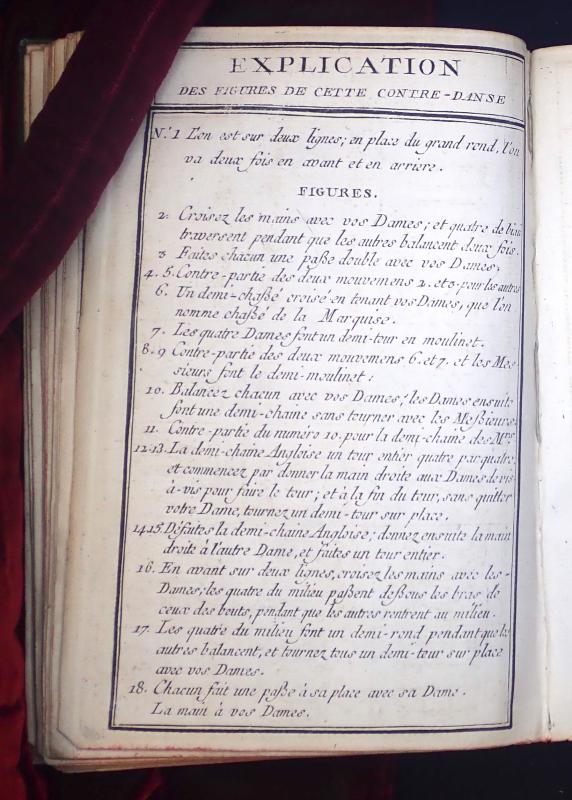 EXPLICATION
DES FIGURES DE CETTE CONTRE-DANSE
N.º 1 L'on est sur deux lignes; en place du grand rond, l'on
va deux fois en avant et en arriere.
FIGURES.
2. Croisez les mains avec vos Dames; et quatre de biais
traversent pendant que les autres balancent deux fois.
3 Faites chacun une paße double avec vos Dames;
4. 5. Contre-partie des deux mouvemens 2. et 3. pour les autres
6. Un demi-chaßé croisé en tenant vos Dames, que l'on
nomme chaßé de la Marquise.
7. Les quatre Dames font un demi-tour en moulinet.
8. 9 Contre-partie des deux mouvemens 6. et 7. et les Mes-
sieurs font le demi-moulinet:
10. Balancez chacun avec vos Dames; les Dames ensuite
font une demi-chaine sans tourner avec les Meßieurs.
11. Contre-partie du numéro 10. pour la demi-chaine des M.rs
12.13. La demi-chaine Angloise un tour entier quatre par quatre,
et commencez par donner la main droite aux Dames de vis-
à-vis pour faire le tour; et à la fin du tour, sans quitter
votre Dame, tournez un demi-tour sur place.
14.15. Défaites la demi-chaine Angloise; donnez ensuite la main
droite à l'autre Dame, et faites un tour entier.
16. En avant sur deux lignes, croisez les mains avec les-
Dames; les quatre du milieu paßent deßous les bras de
ceux des bouts, pendant que les autres rentrent au milieu.
17. Les quatre du milieu font un demi-rond pendant que les
autres balancent, et tournez tous un demi-tour sur place
avec vos Dames.
18. Chacun fait une paße à sa place avec sa Dame.
La main à vos Dames.